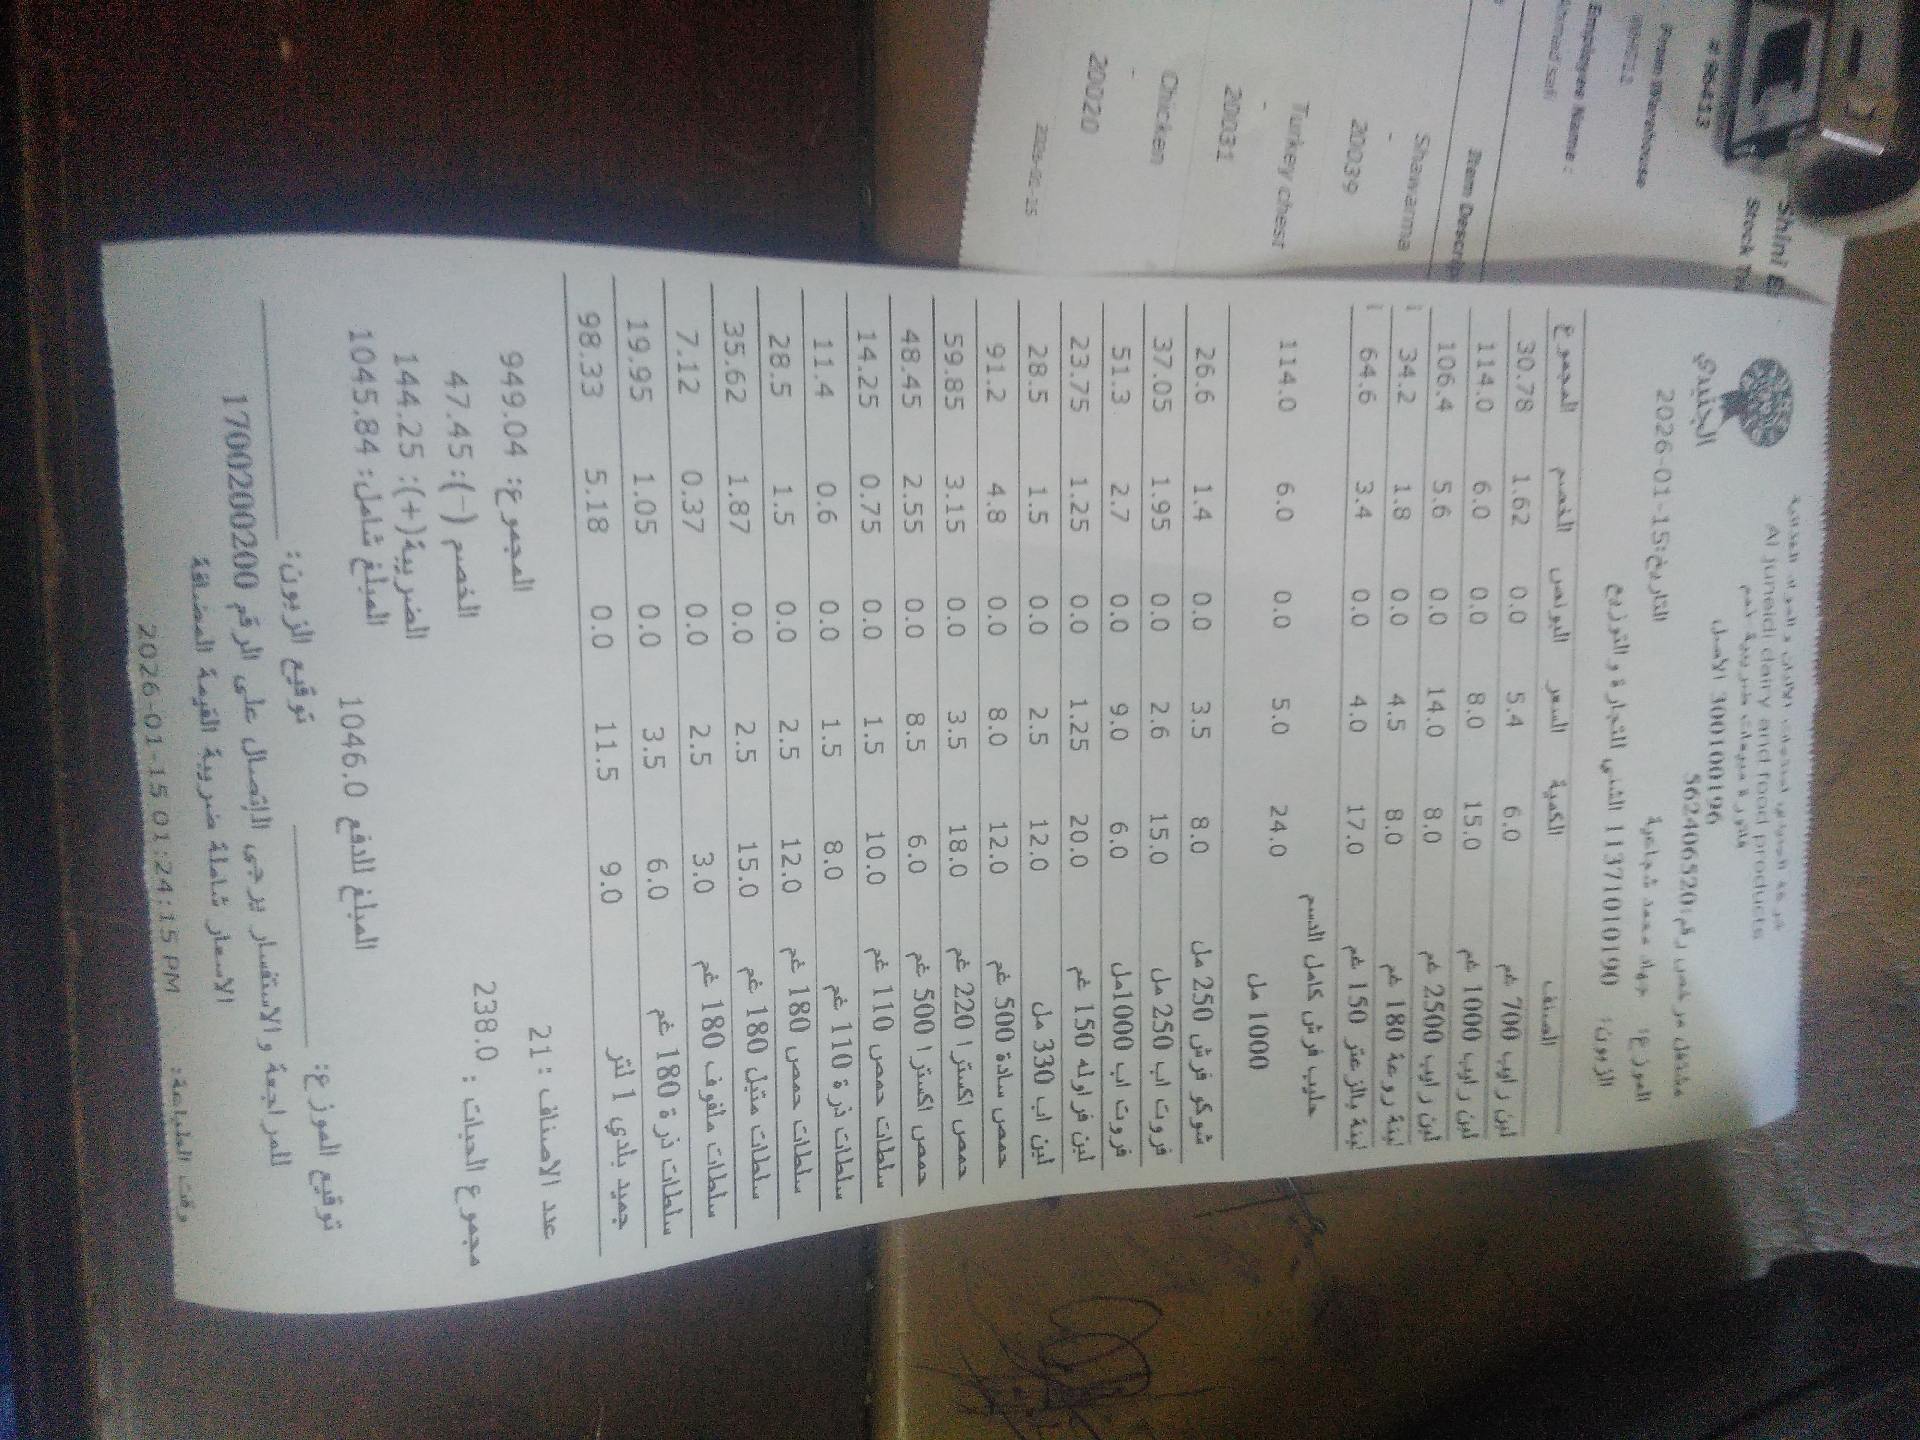 شركة الجنيدي لمنتجات الالبان و المواد الغذائية
Al juneidi dairy and food products
فاتورة مبيعات ضريبية رقم
300100196 الاصل
مشتغل مرخص رقم:562406520
الجنيدي
التاريخ:15-01-2026
الموزع: جهاد محمد شجاعية
الزبون: 1137101019٥ الشني للتجارة و التوزيع
الصنف الكمية السعر البونص الخصم المجموع
لبن رايب 700 غم 6.0 5.4 0.0 1.62 30.78
لبن رايب 1000 غم 15.0 8.0 0.0 6.0 114.0
لبن رايب 2500 غم 8.0 14.0 0.0 5.6 106.4
لبنة روعة 180 غم 8.0 4.5 0.0 1.8 34.2
لبنة بالزعتر 150 غم 17.0 4.0 0.0 3.4 64.6
حليب فرش كامل الدسم
1000 مل 24.0 5.0 0.0 6.0 114.0
شوكو فرش 250 مل 8.0 3.5 0.0 1.4 26.6
فروت اب 250 مل 15.0 2.6 0.0 1.95 37.05
فروت اب 1000مل 6.0 9.0 0.0 2.7 51.3
لبن فراوله 150 غم 20.0 1.25 0.0 1.25 23.75
لبن اب 330 مل 12.0 2.5 0.0 1.5 28.5
حمص سادة 500 غم 12.0 8.0 0.0 4.8 91.2
حمص اكسترا 220 غم 18.0 3.5 0.0 3.15 59.85
حمص اكسترا 500 غم 6.0 8.5 0.0 2.55 48.45
سلطات حمص 110 غم 10.0 1.5 0.0 0.75 14.25
سلطات ذرة 110 غم 8.0 1.5 0.0 0.6 11.4
سلطات حمص 180 غم 12.0 2.5 0.0 1.5 28.5
سلطات متبل 180 غم 15.0 2.5 0.0 1.87 35.62
سلطات ملفوف 180 غم 3.0 2.5 0.0 0.37 7.12
سلطات ذرة 180 غم 6.0 3.5 0.0 1.05 19.95
جميد بلدي 1 لتر 9.0 11.5 0.0 5.18 98.33
عدد الاصناف : 21 المجموع: 949.04
مجموع الحبات : 238.0 الخصم (-): 47.45
الضريبة(+): 144.25
المبلغ للدفع 1046.0 المبلغ شامل: 1045.84
توقيع الموزع: توقيع الزبون:
للمراجعة و الاستفسار يرجى الاتصال على الرقم 1700200200
الاسعار شاملة ضريبة القيمة المضافة
وقت الطباعة: 2026-01-15 01:24:15 PM
Shini E
Stock Tra
# 96413
From Warehouse
Employee Name :
Item Descrip
Shawarma
-
20039
Turkey chest
-
20031
Chicken
-
20020